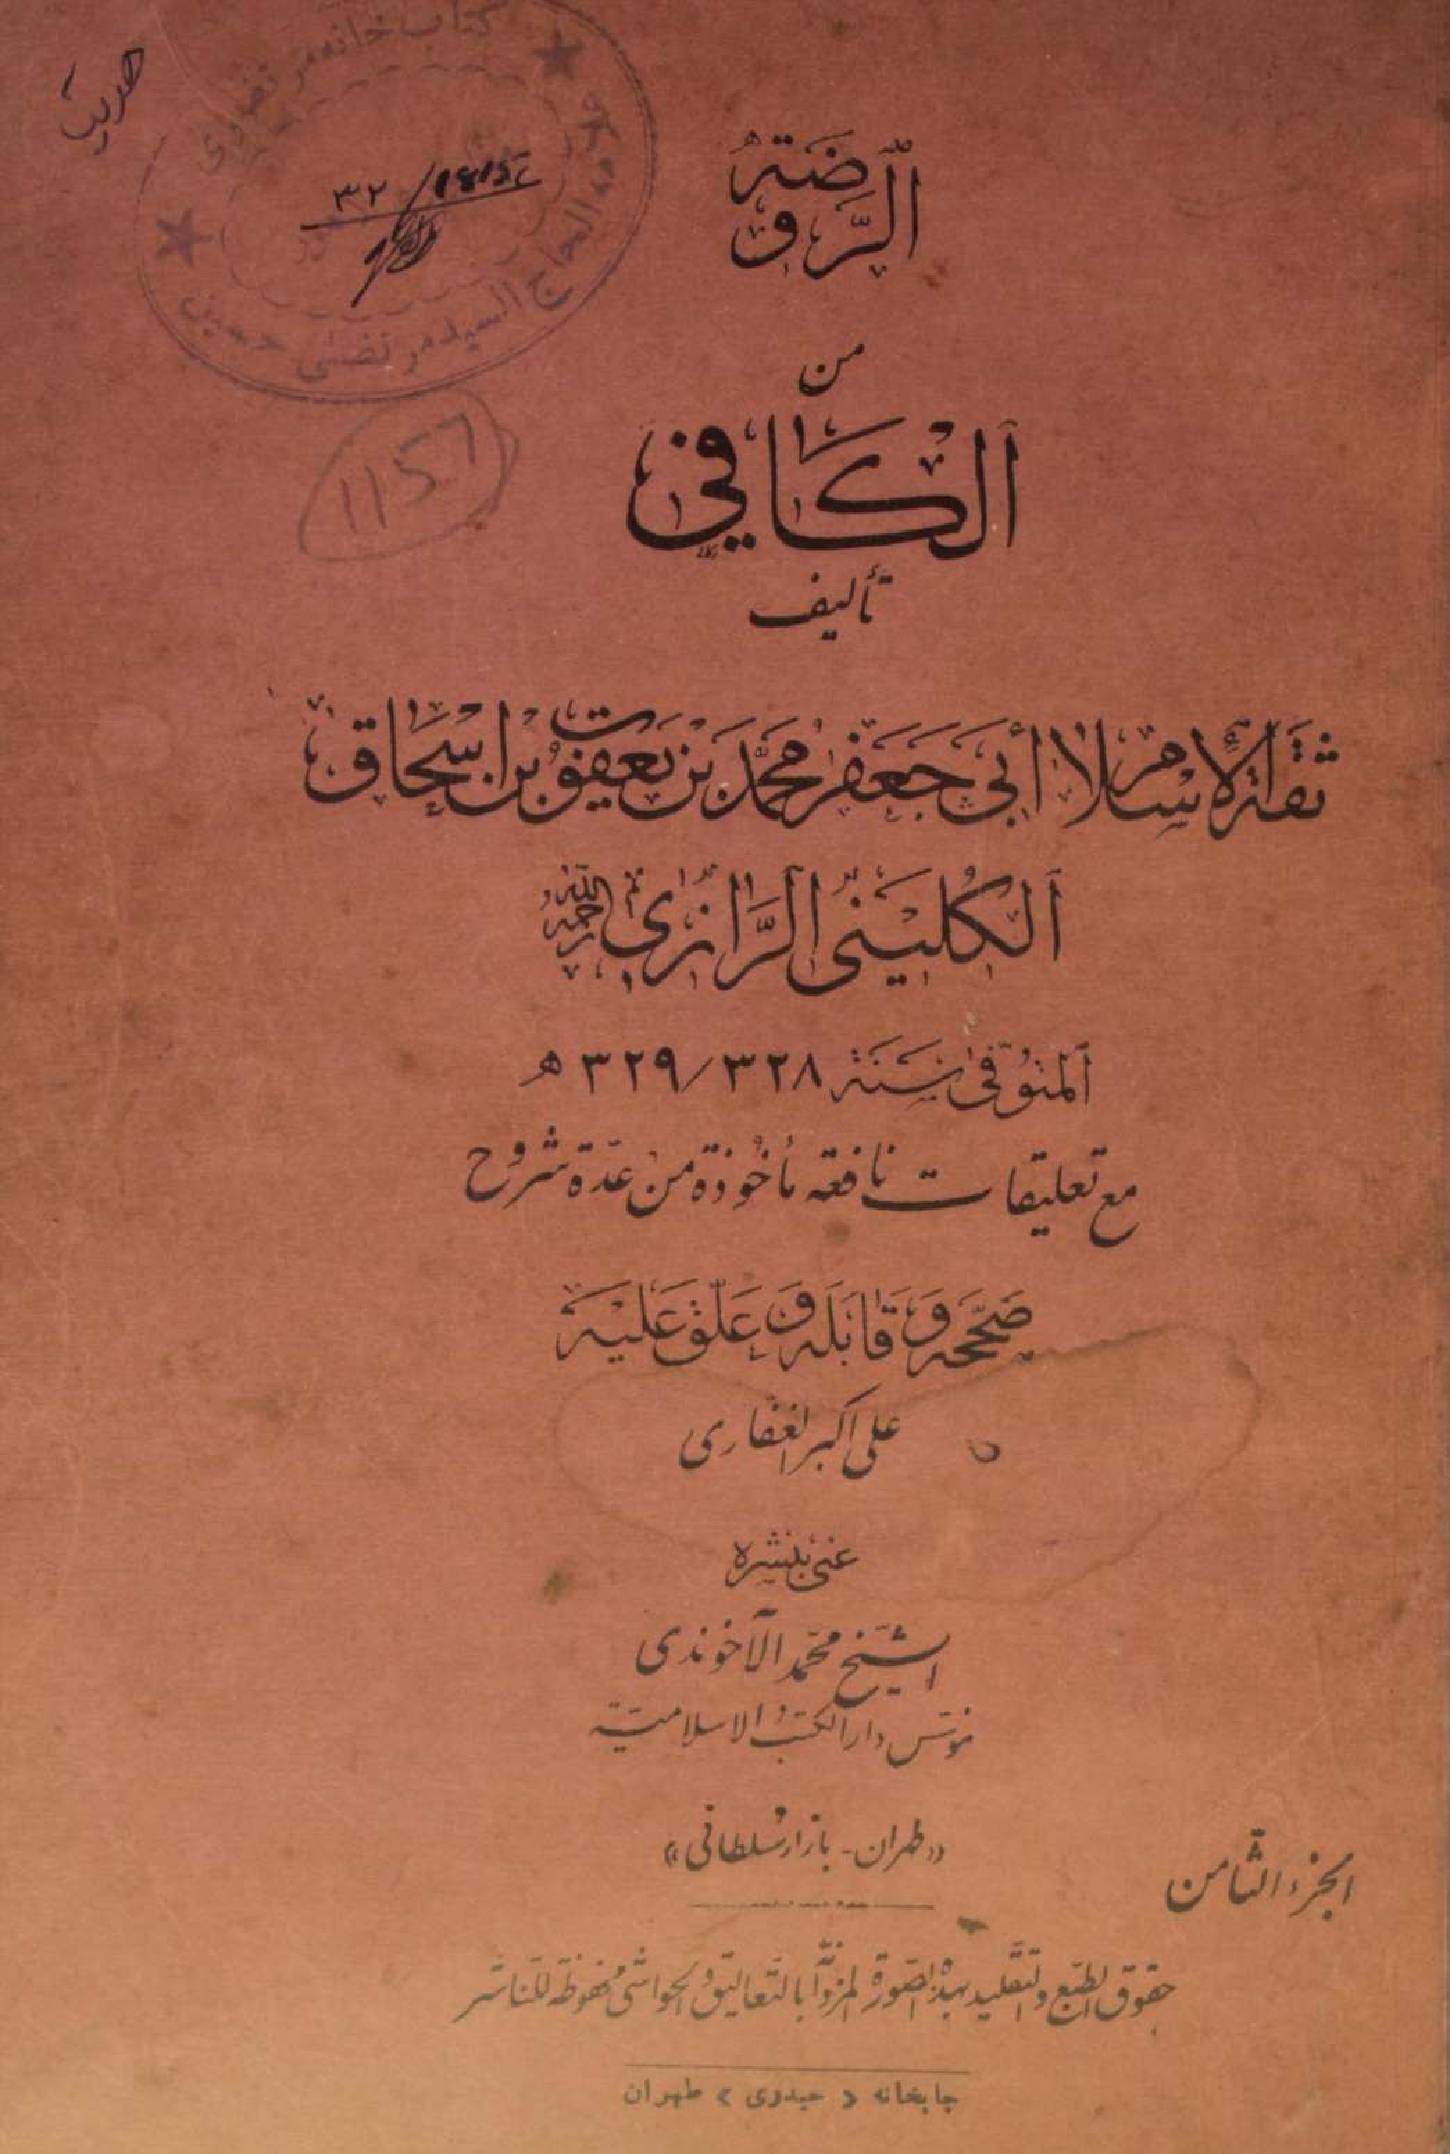 كتاب خانه مرتضوی
السيد مرتضى حسين
حدیث
٣٢
1157
الرَّوضَةُ
من
الكافي
تأليف
ثقة الإسلام أبي جعفر محمد بن يعقوب بن اسحاق
الكُليني الرَّازي رحمه الله
المتوفّى سنة ٣٢٨/٣٢٩ ه
مع تعليقات نافعه مأخوذة من عدّة شروح
صحّحه و قابله و علّق عليه
على اكبر الغفارى
عنى بنشره
الشيخ محمّد الآخوندى
مؤسّس دار الكتب الاسلاميّة
«طهران - بازار سلطانى»
الجزء الثّامن
حقوق الطبع والتقليد بهذه الصّورة المزدانة بالتّعاليق والحواشى محفوظة للنّاشر
چاپخانه « حیدری » طهران